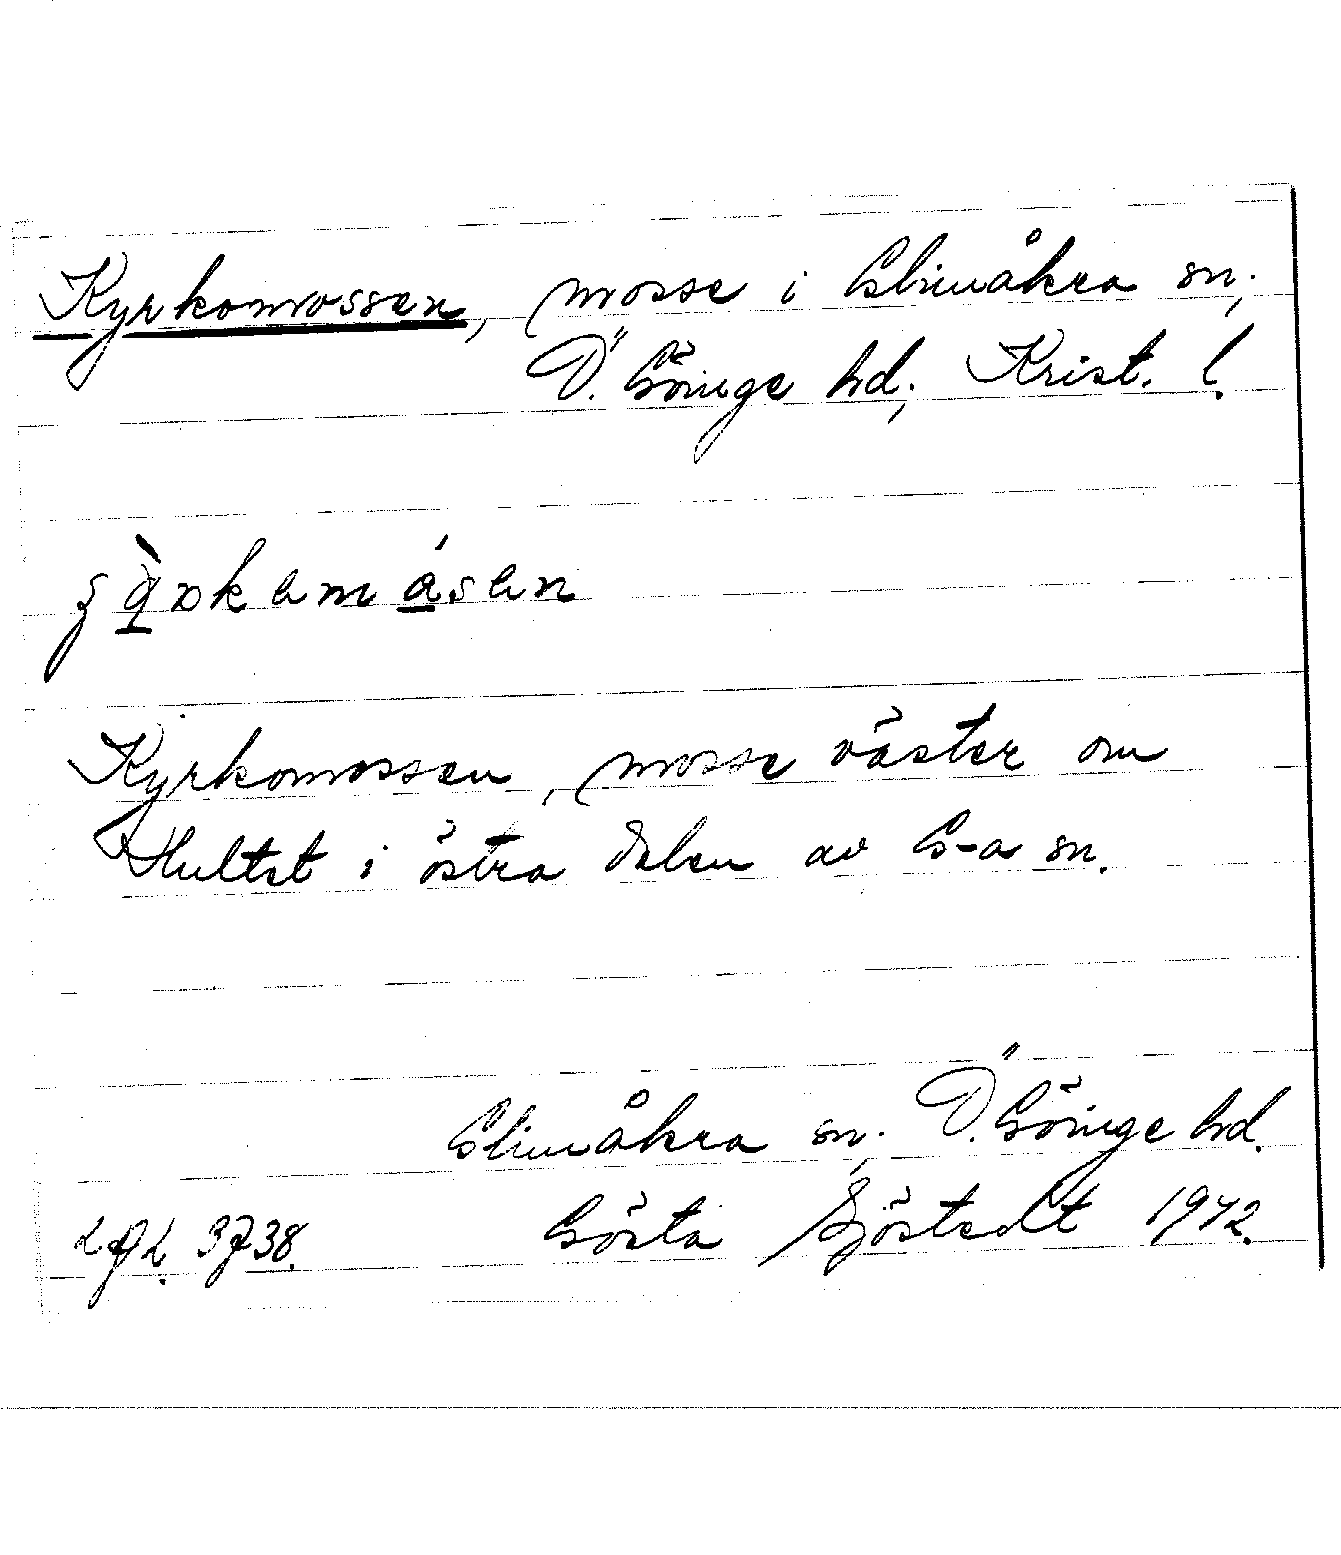 Kyrkomossen, mosse i Glimåkra sn,
Ö. Göinge hd, Krist. l.
Kyrkomossen, mosse väster om
Hultet i östra delen av G-a sn.
Glimåkra sn, Ö. Göinge hd.
LAL. 3738. Gösta Sjöstedt 1942.